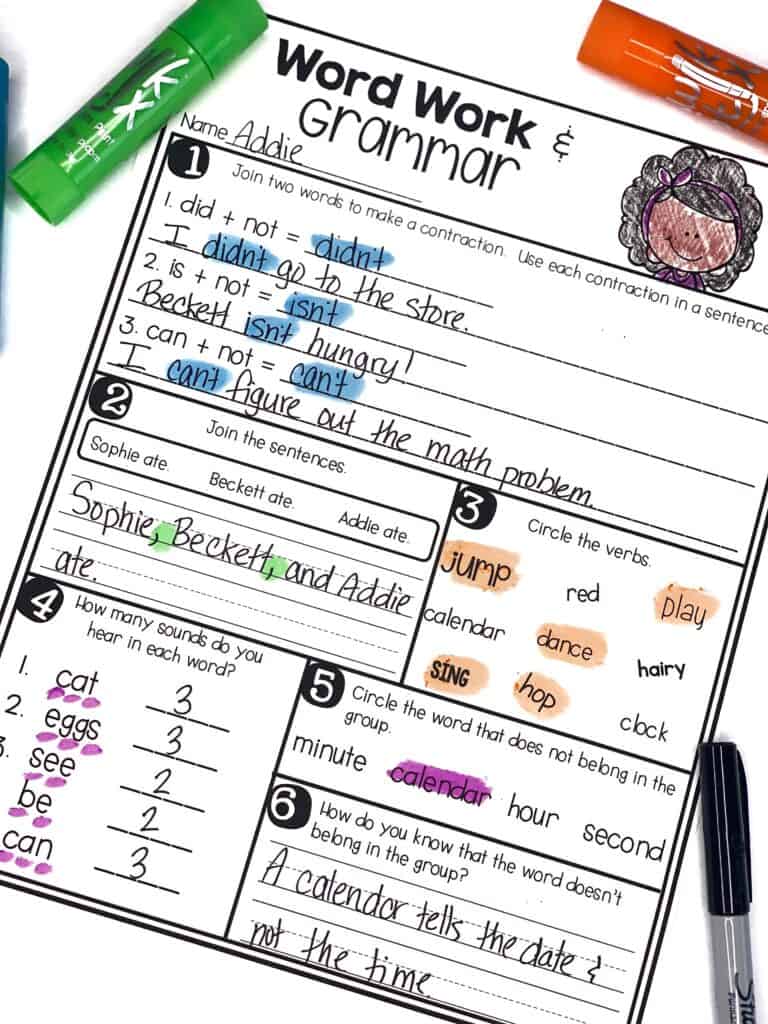 Kwik
Stix
Word Work &
Grammar
Name Addie
1 Join two words to make a contraction. Use each contraction in a sentence
1. did + not = didn't
I didn't go to the store.
2. is + not = isn't
Beckett isn't hungry!
3. can + not = can't
I can't figure out the math problem.
2 Join the sentences.
Sophie ate. Beckett ate. Addie ate.
Sophie, Beckett, and Addie
ate.
3 Circle the verbs.
jump red play
calendar dance hairy
sing hop clock
4 How many sounds do you
hear in each word?
1. cat 3
2. eggs 3
3. see 2
be 2
can 3
5 Circle the word that does not belong in the
group.
minute calendar hour second
6 How do you know that the word doesn't
belong in the group?
A calendar tells the date &
not the time.